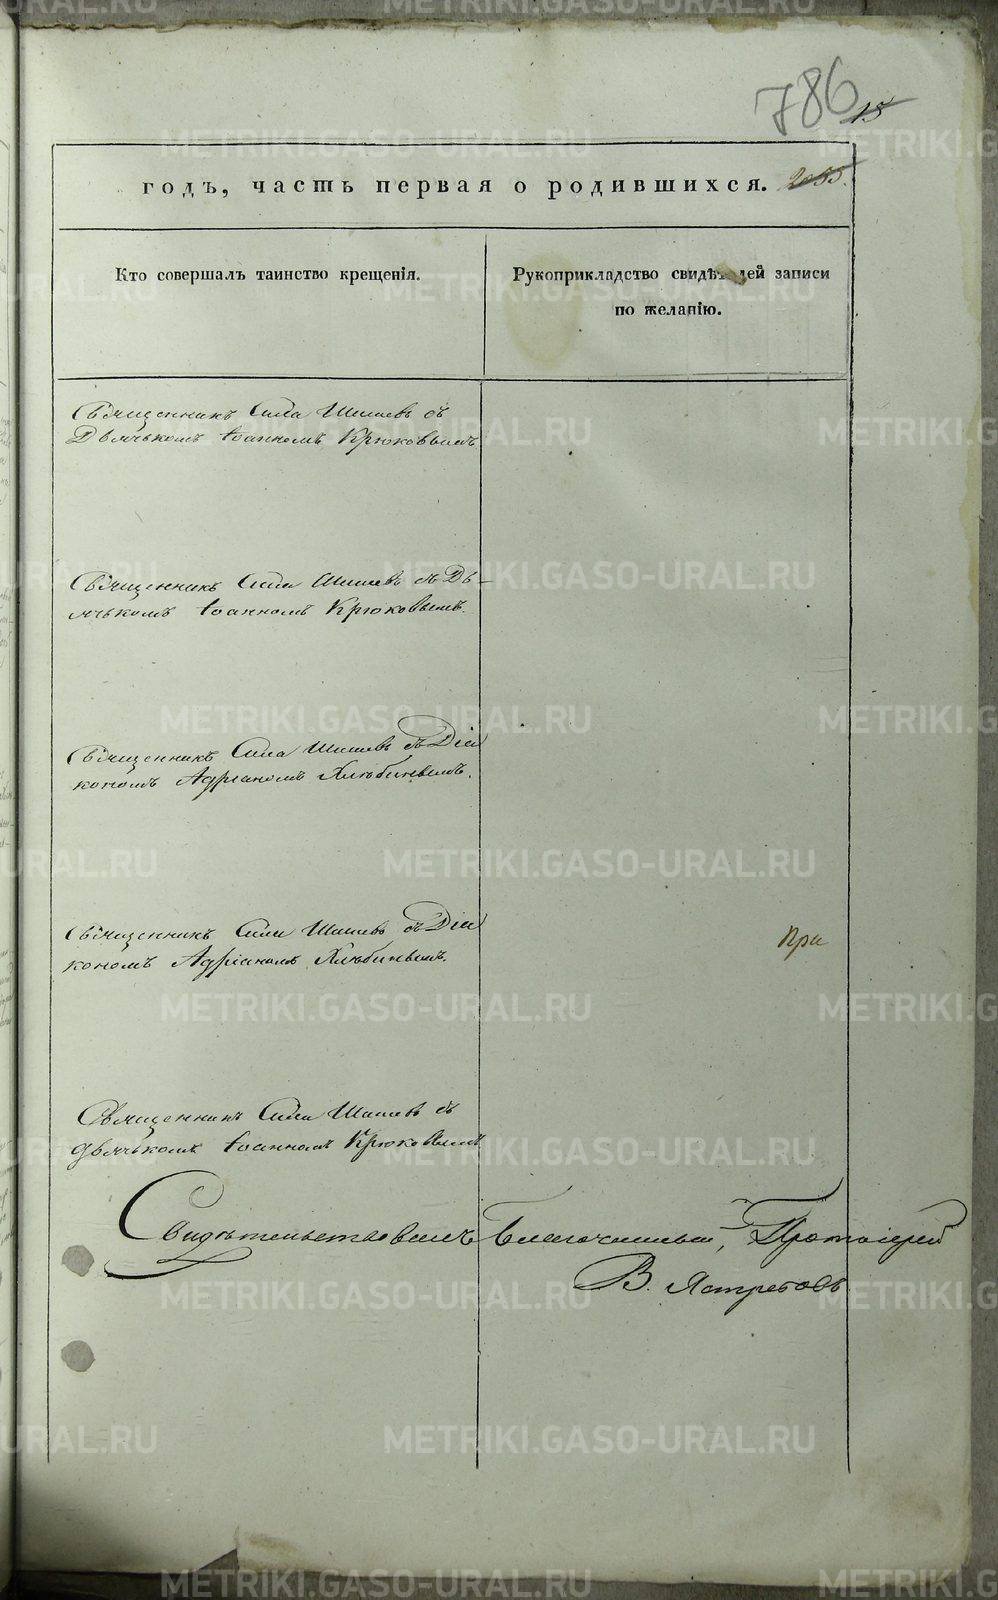 786 15
годъ, часть первая о родившихся. 2055.
Кто совершалъ таинство крещенія.
Рукоприкладство свидѣтелей записи
по желанію.
Священникъ Сила Шишевъ съ
Дьячькомъ Іоанномъ Крюковымъ
Священникъ Сила Шишевъ съ Дь-
ячькомъ Іоанномъ Крюковымъ.
Священникъ Сила Шишевъ съ Діа
кономъ Адріаномъ Хлюбинвымъ.
Священникъ Сила Шишевъ съ Діа
кономъ Адріаномъ Хлюбинвымъ.
При
Священникъ Сила Шишевъ съ
дьячькомъ Іоанномъ Крюковымъ
Свидѣтельствовалъ Благочинный, Протоіерей
В. Ястребовъ
METRIKI.GASO-URAL.RU